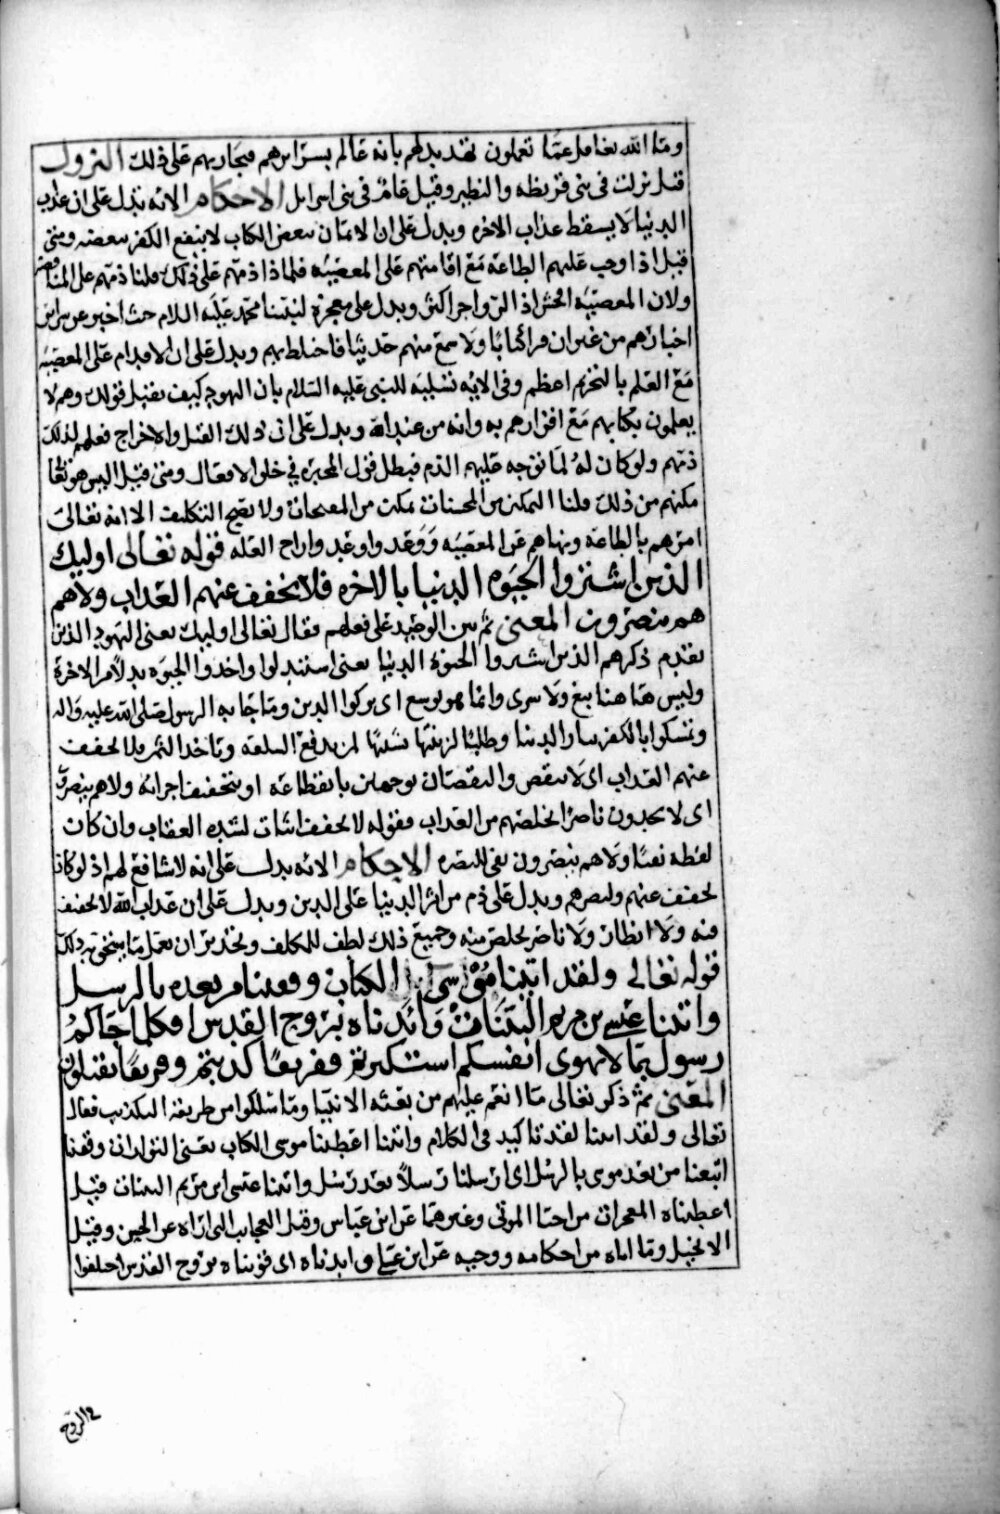 وما الله بغافل عما تعملون تهديد لهم بانه عالم بسرايرهم فيجازيهم على ذلك النزول
قيل نزلت في بني قريظة والنضير وقيل عام في بني اسرايل الاحكام الايه تدل على ان عذاب
الدنيا لا يسقط عذاب الاخره ويدل على ان الايمان ببعض الكتاب لا ينفع الكفر ببعضه ومتى
قيل اذا وجب عليهم الطاعة مع اقامتهم على المعصيه فلماذا ذمهم على ذلك قلنا ذمهم على المناقضه
ولان المعصيه افحش اذ الزواجر اكثر ويدل على معجزة لنبينا محمد عليه السلام حيث اخبر عن سراير
اخبارهم من غير ان قرا كتابا ولا سمع منهم حديثا فاختلط بهم ويدل على ان الاقدام على المعصيه
مع العلم بالتحريم اعظم وفي الايه تسلية للنبي عليه السلام بان اليهود كيف تقبل قولك وهم لا
يعملون بكتابهم مع اقرارهم به وانه من عند الله ويدل على ان ذلك القتل والاخراج فعلهم لذلك
ذمهم ولو كان له لما توجه عليهم الذم فيبطل قول المجبرة في خلق الافعال ومتى قيل اليس هو تعالى
مكنهم من ذلك قلنا التمكين من الحسنات تمكين من المقبحات ولا يصح التكليف الا انه تعالى
امرهم بالطاعة ونهاهم عن المعصيه ووعد واوعد وازاح العله قوله تعالى اوليك
الذين اشتروا الحيوه الدنيا بالاخره فلا يخفف عنهم العذاب ولا هم
هم ينصرون المعنى ثم بين الوعيد على فعلهم فقال تعالى اوليك يعني اليهود الذين
تقدم ذكرهم الذين اشتروا الحيوة الدنيا يعني استبدلوا واخذوا الحيوه بدلا من الاخرة
وليس هاهنا بيع ولا شرى وانما هو توسع اي تركوا الدين وما جا به الرسول صلى الله عليه واله
وتمسكوا بالكفر ايثارا لدنيا وطلبا لزينتها تشبيها لمن يدفع السلعه وياخذ الثمن فلا يخفف
عنهم العذاب اي لا ينقص والنقصان بوجهين بانقطاعه او بتخفيف اجزائه ولا هم ينصرون
اي لا يجدون ناصرا يخلصهم من العذاب فقوله لا يخفف اثبات لشده العقاب وان كان
لفظه نفيا ولا هم ينصرون نفي للنصره الاحكام الايه تدل على انه لا شافع لهم اذ لو كان
لخفف عنهم ولنصرهم ويدل على ذم من اثر الدنيا على الدين ويدل على ان عذاب الله لا تخفيف
فيه ولا انظار ولا ناصر يخلص منه وجميع ذلك لطف للمكلف وتحذير ان يعمل ما يستحق به ذلك
قوله تعالى ولقد اتينا موسى الكتاب وقفينا من بعده بالرسل
واتينا عيسى بن مريم البينات وايدناه بروح القدس افكلما جاكم
رسول بما لا تهوى انفسكم استكبرتم ففريقا كذبتم وفريقا تقتلون
المعنى ثم ذكر تعالى ما انعم عليهم من بعثه الانبيا وما سلكوا من طريقه التكذيب فقال
تعالى ولقد اتينا لقد تاكيد في الكلام واتينا اعطينا موسى الكتاب يعني التوراة وقفينا
اتبعنا من بعد موسى بالرسل اي ارسلنا رسلا بعد رسل واتينا عيسى ابن مريم البينات قيل
اعطيناه المعجزات من احيا الموتى وغيرهما عن ابن عباس وقيل العجايب التي اراه عن الحسن وقيل
الانجيل وما اتاه من احكامه ووحيه عن ابي علي وايدناه اي قويناه بروح القدس اختلفوا
في الروح